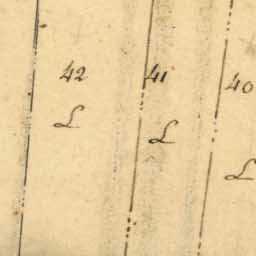 42 41 40
L L L